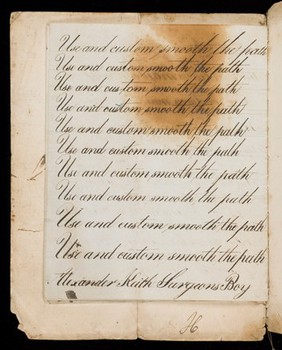 Use and custom smooth the path
Use and custom smooth the path
Use and custom smooth the path
Use and custom smooth the path
Use and custom smooth the path
Use and custom smooth the path
Use and custom smooth the path
Use and custom smooth the path
Use and custom smooth the path
Use and custom smooth the path
Alexander Keith Surgeons Boy